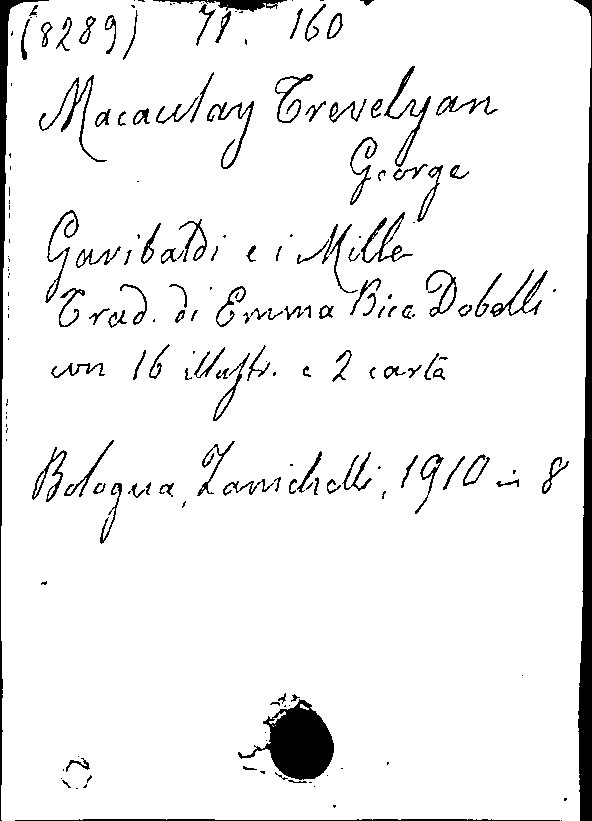 (8289) 71. 160
Macaulay Trevelyan
George
Garibaldi e i Mille
Trad. di Emma Bice Dobelli
con 16 illustr. e 2 carte
Bologna, Zanichelli, 1910 in 8